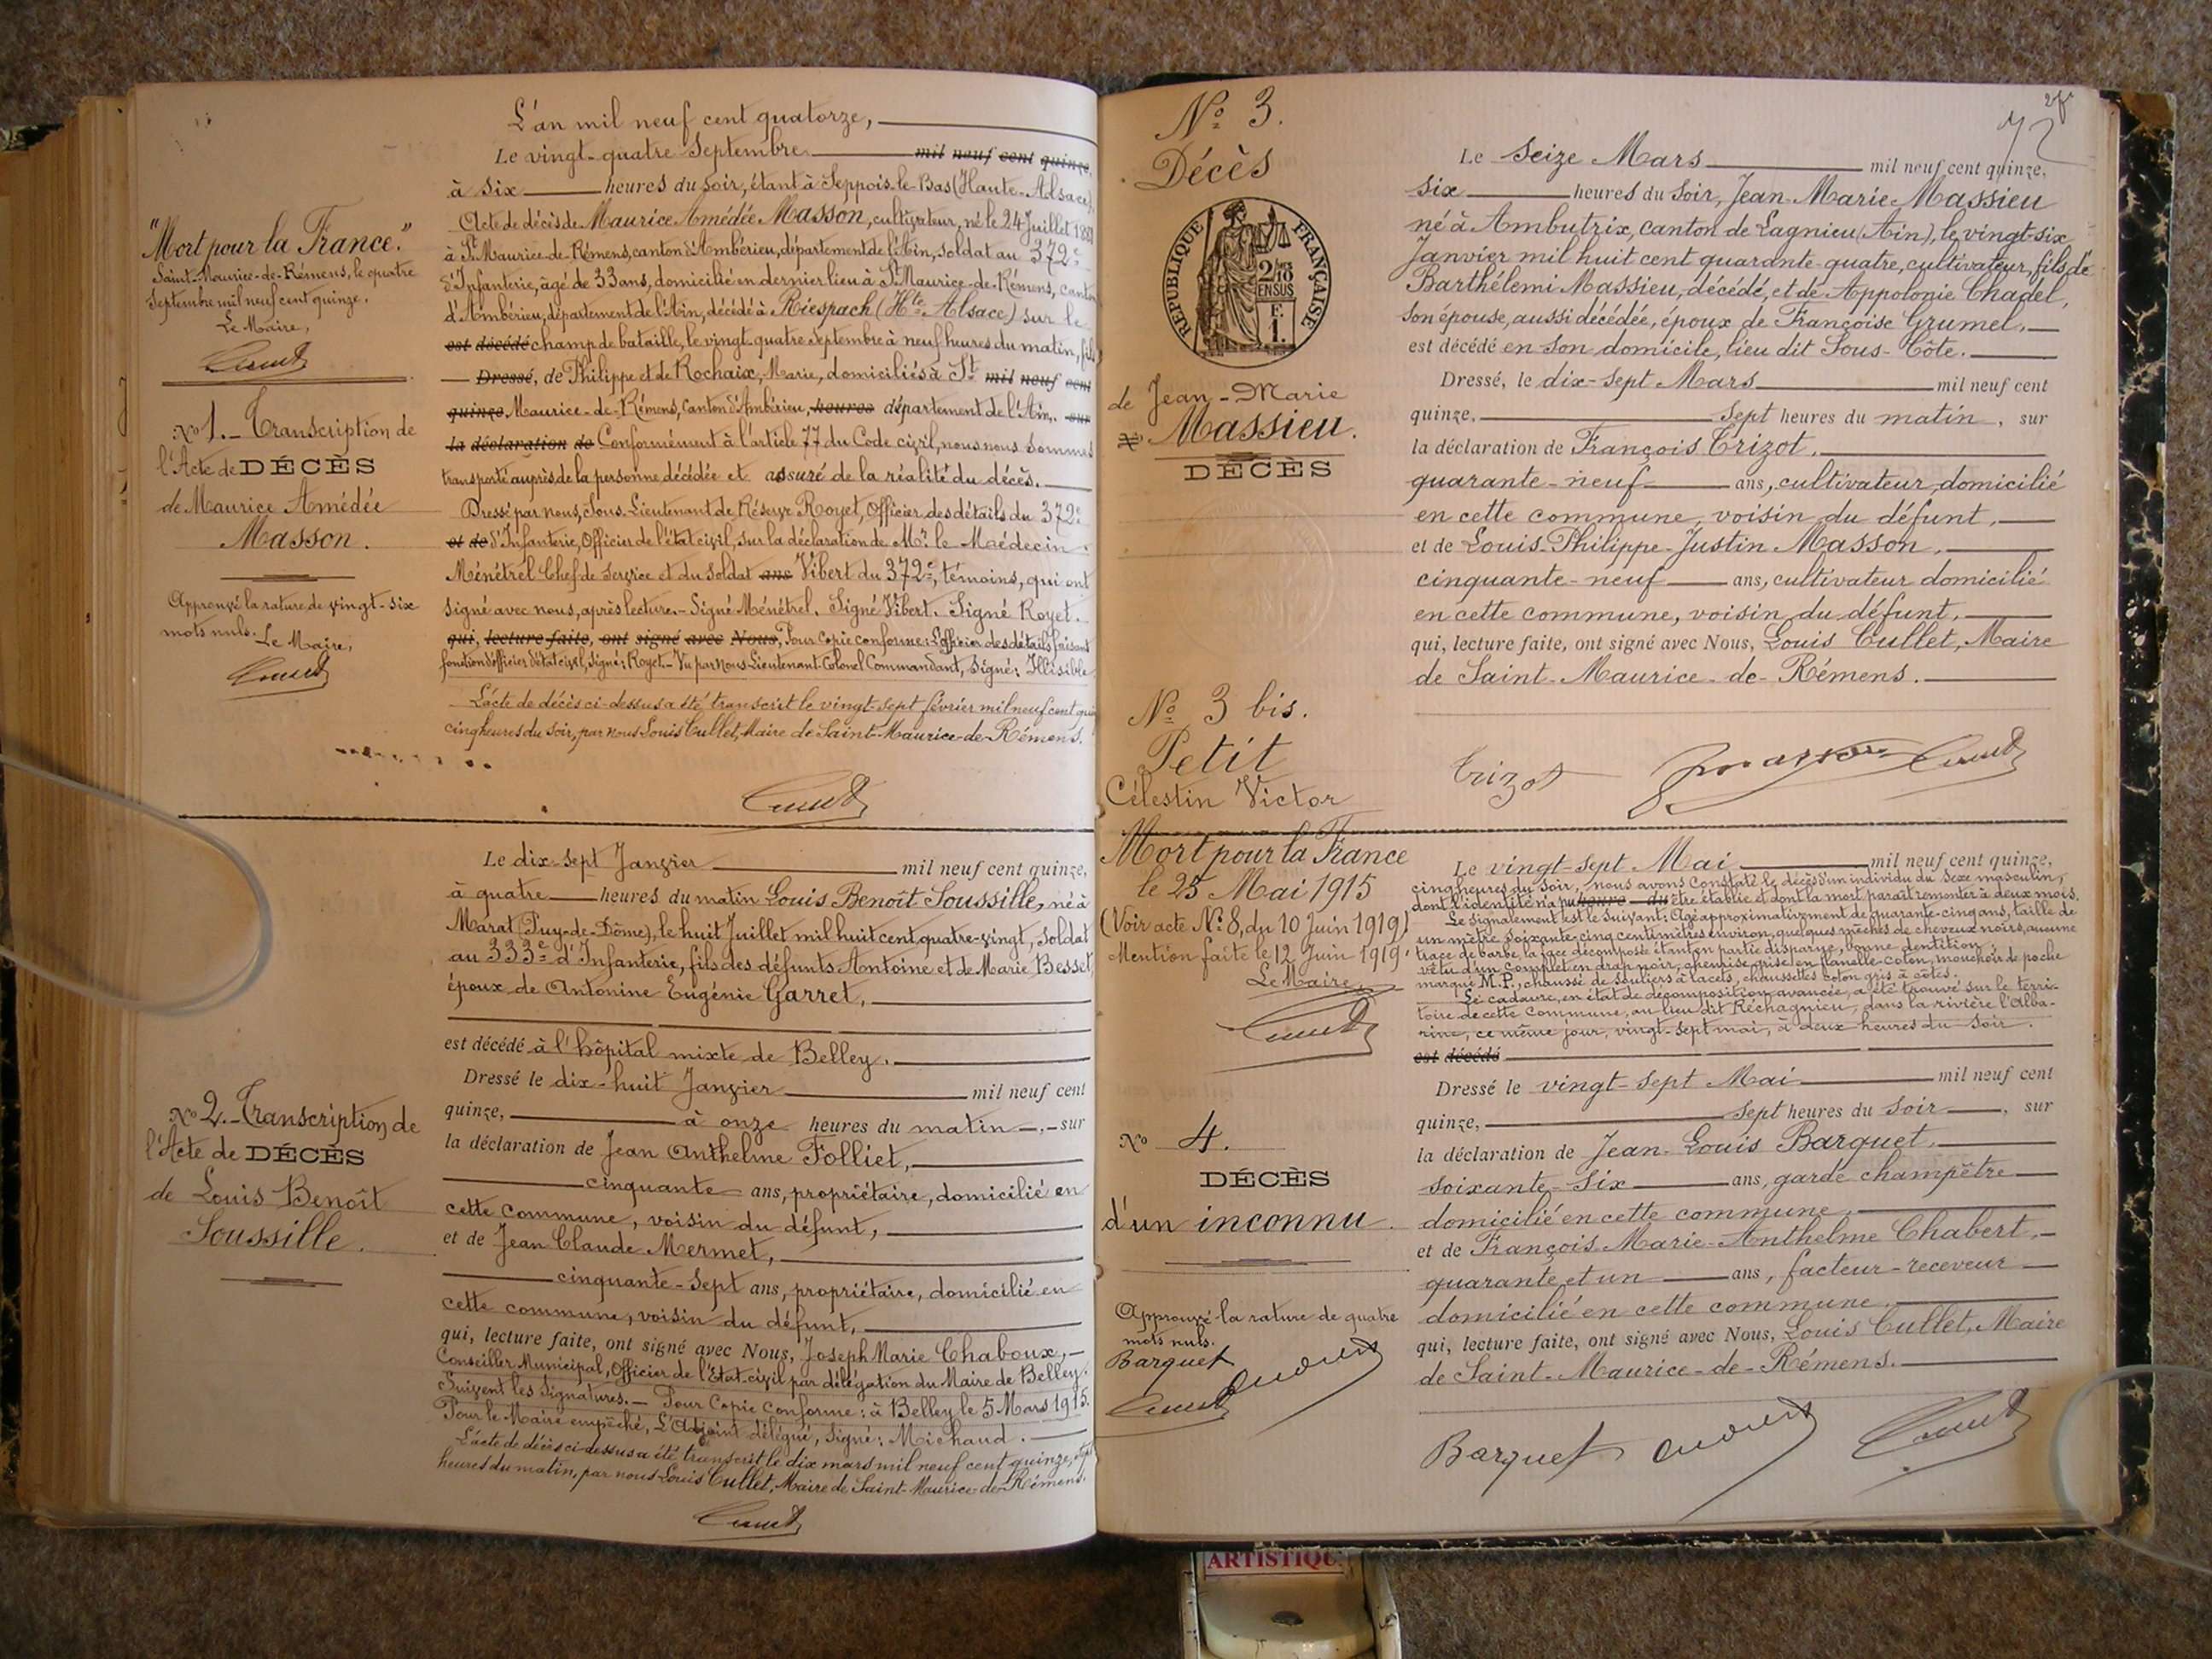 L'an mil neuf cent quatorze,
Le vingt-quatre Septembre mil neuf cent quinze,
à six heures du soir, étant à Seppois-le-Bas (Haute-Alsace)
Acte de décès de Maurice Amédée Masson, cultivateur, né le 24 Juillet 1881
à St Maurice-de-Rémens, canton d'Ambérieu, département de l'Ain, soldat au 372e
d'Infanterie, âgé de 33 ans, domicilié en dernier lieu à St Maurice-de-Rémens, canton
d'Ambérieu, département de l'Ain, décédé à Riespach (Hte Alsace) sur le
est décédé champ de bataille, le vingt-quatre septembre à neuf heures du matin, fils
Dressé, de Philippe et de Rochaix, Marie, domiciliés à St mil neuf cent
quinze Maurice-de-Rémens, canton d'Ambérieu, heures département de l'Ain. sur
la déclaration de Conformément à l'article 77 du Code civil, nous nous sommes
transporté auprès de la personne décédée et assuré de la réalité du décès.
Dressé par nous, Sous-Lieutenant de Réserve Royet, Officier des détails du 372e
et de d'Infanterie, Officier de l'état civil, sur la déclaration de Mr. le Maédecin
Ménétrel Chef de service et du soldat ans Vibert du 372e, témoins, qui ont
signé avec nous, après lecture.- Signé Ménétrel. Signé Vibert. Signé Royet.
qui, lecture faite, ont signé avec Nous, Pour copie conforme: L'officier des détails faisant
fonction d'officier d'état civil, signé: Royet.- Vu par nous Lieutenant-Colonel Commandant, signé: Illisible.
L'acte de décès ci-dessus a été transcrit le vingt-sept février mil neuf cent quinze
cinq heures du soir, par nous Louis Cullet, Maire de Saint-Maurice-de-Rémens.
Cullet
"Mort pour la France."
Saint-Maurice-de-Rémens, le quatre
Septembre mil neuf cent quinze.
Le Maire,
Cullet
No 1.- Transcription de
l'Acte de DÉCÈS
de Maurice Amédée
Masson.
Approuvé la rature de vingt-six
mots nuls. Le Maire,
Cullet
Le dix-sept Janvier mil neuf cent quinze,
à quatre heures du matin Louis Benoît Soussille, né à
Marat (Puy-de-Dôme), le huit Juillet mil huit cent quatre-vingt, soldat
au 333e d'Infanterie, fils des défunts Antoine et de Marie Besset,
époux de Antonine Eugénie Garret,
est décédé à l'hôpital mixte de Belley.
Dressé le dix-huit Janvier mil neuf cent
quinze, à onze heures du matin, sur
la déclaration de Jean Anthelme Folliet,
cinquante ans, propriétaire, domicilié en
cette commune, voisin du défunt,
et de Jean Claude Mermet,
cinquante-sept ans, propriétaire, domicilié en
cette commune, voisin du défunt,
qui, lecture faite, ont signé avec Nous, Joseph Marie Chaboux,
Conseiller Municipal, Officier de l'Etat-civil par délégation du Maire de Belley.
Suivent les signatures.- Pour Copie conforme: à Belley le 5 Mars 1915.
Pour le Maire empêché, L'Adjoint délégué, Signé: Michaud.
L'acte de décès ci-dessus a été transcrit le dix mars mil neuf cent quinze, sept
heures du matin, par nous Louis Cullet, Maire de Saint-Maurice-de-Rémens.
Cullet
No 2.- Transcription de
l'Acte de DÉCÈS
de Louis Benoît
Soussille.
72
No 3.
Décès
RÉPUBLIQUE FRANÇAISE
2/10
EN SUS
F.
1.
de Jean-Marie
No Massieu.
DÉCÈS
Le Seize Mars mil neuf cent quinze,
six heures du soir, Jean-Marie Massieu
né à Ambutrix, canton de Lagnieu (Ain), le vingt-six
Janvier mil huit cent quarante-quatre, cultivateur, fils de
Barthélemi Massieu, décédé, et de Appolonie Chadel,
son épouse, aussi décédée, époux de Françoise Grumel,
est décédé en son domicile, lieu dit Sous-Côte.
Dressé, le dix-sept Mars mil neuf cent
quinze, sept heures du matin, sur
la déclaration de François Trizot,
quarante-neuf ans, cultivateur, domicilié
en cette commune, voisin du défunt,
et de Louis-Philippe-Justin Masson,
cinquante-neuf ans, cultivateur domicilié
en cette commune, voisin du défunt,
qui, lecture faite, ont signé avec Nous, Louis Cullet, Maire
de Saint-Maurice-de-Rémens.
Trizot Masson Cullet
No 3 bis.
Petit
Célestin Victor
Mort pour la France
le 25 Mai 1915
(Voir acte No 8, du 10 Juin 1919)
Mention faite le 12 Juin 1919.
Le Maire
Cullet
No 4.
DÉCÈS
d'un inconnu.
Approuvé la rature de quatre
mots nuls.
Barquet
Cullet
Le vingt-sept Mai mil neuf cent quinze,
cinq heures du soir, nous avons constaté le décès d'un individu du sexe masculin,
dont l'identité n'a pu heure du être établie et dont la mort paraît remonter à deux mois.
Le signalement est le suivant: Age approximativement de quarante-cinq ans, taille de
un mètre soixante-cinq centimètres environ, quelques mèches de cheveux noirs, aucune
trace de barbe, la face décomposée étant en partie disparue, bonne dentition;
vêtu d'un complet en drap noir, chemise grise en flanelle-coton, mouchoir de poche
marqué M.P., chaussé de souliers à lacets, chaussettes coton gris à côtes.
Le cadavre, en état de décomposition avancée, a été trouvé sur le terri-
toire de cette commune, au lieu dit Réchagnieu, dans la rivière l'Alba-
rine, ce même jour, vingt-sept mai, à deux heures du soir.
est décédé
Dressé le vingt-sept Mai mil neuf cent
quinze, sept heures du soir, sur
la déclaration de Jean-Louis Barquet,
soixante-six ans, garde champêtre
domicilié en cette commune,
et de François Marie-Anthelme Chabert,
quarante et un ans, facteur-receveur
domicilié en cette commune,
qui, lecture faite, ont signé avec Nous, Louis Cullet, Maire
de Saint-Maurice-de-Rémens.
Barquet Cullet
ARTISTIQU